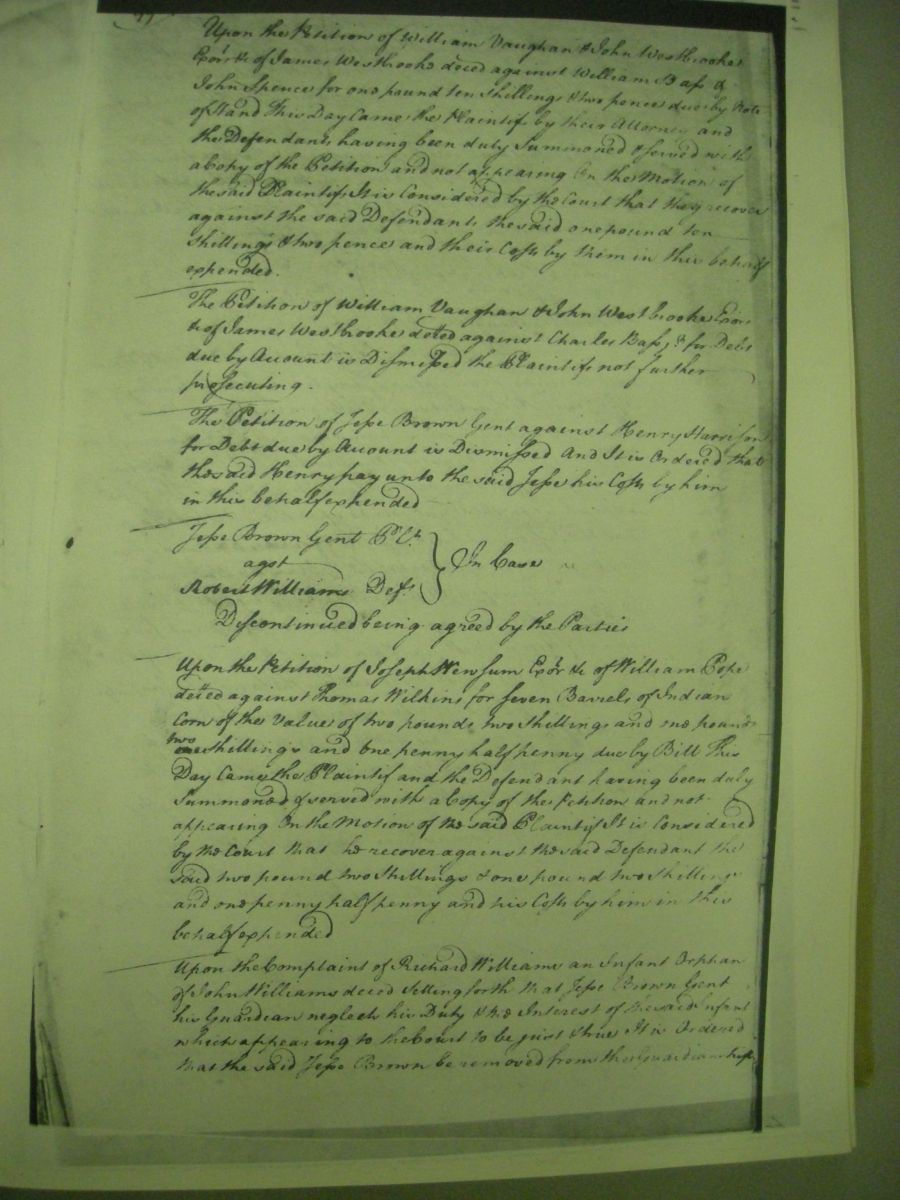 Upon the Petition of William Vaughan & John Westbrooke
Exōr &c of James Westbrooke deced against William Bass &
John Spence for one pound ten shillings & two pence due by Note
of Hand This Day Came the Plaintifs by their Attorney and
the Defendants having been duly Summoned & served with
a Copy of the Petition and not appearing On the Motion of
the said Plaintifs It is Considered by the Court that they recover
against the said Defendants the said one pound ten
shillings & two pence and their Costs by them in this behalf
expended.
The Petition of William Vaughan & John Westbrooke Exōr
&c of James Westbrooke deced against Charles Bass, for Debt
due by Account is Dismissed the Plaintifs not further
prosecuting.
The Petition of Jesse Brown Gent against Henry Harrison
for Debt due by Account is Dismissed And It is Ordered that
the said Henry pay unto the said Jesse his Costs by him
in this behalf expended
Jesse Brown Gent
agst
Robert Williams Deft
In Case
Discontinued being agreed by the Parties
Upon the Petition of Joseph Newsum Exōr &c of William Pope
deced against Thomas Wilkins for seven Barrels of Indian
Corn of the Value of two pounds two shillings and one pound
two
shillings and one penny half penny due by Bill This
Day Came the Plaintif and the Defendant having been duly
Summoned & served with a Copy of the Petition and not
appearing On the Motion of the said Plaintif It is Considered
by the Court that he recover against the said Defendant the
said two pound two shillings & one pound two shillings
and one penny half penny and his Costs by him in this
behalf expended
Upon the Complaint of Richard Williams an Infant Orphan
of John Williams deced Setting forth that Jesse Brown Gent
his Guardian neglects his Duty & the Interest of the said Infant
which appearing to the Court to be just & true It is Ordered
that the said Jesse Brown be removed from the Guardianship